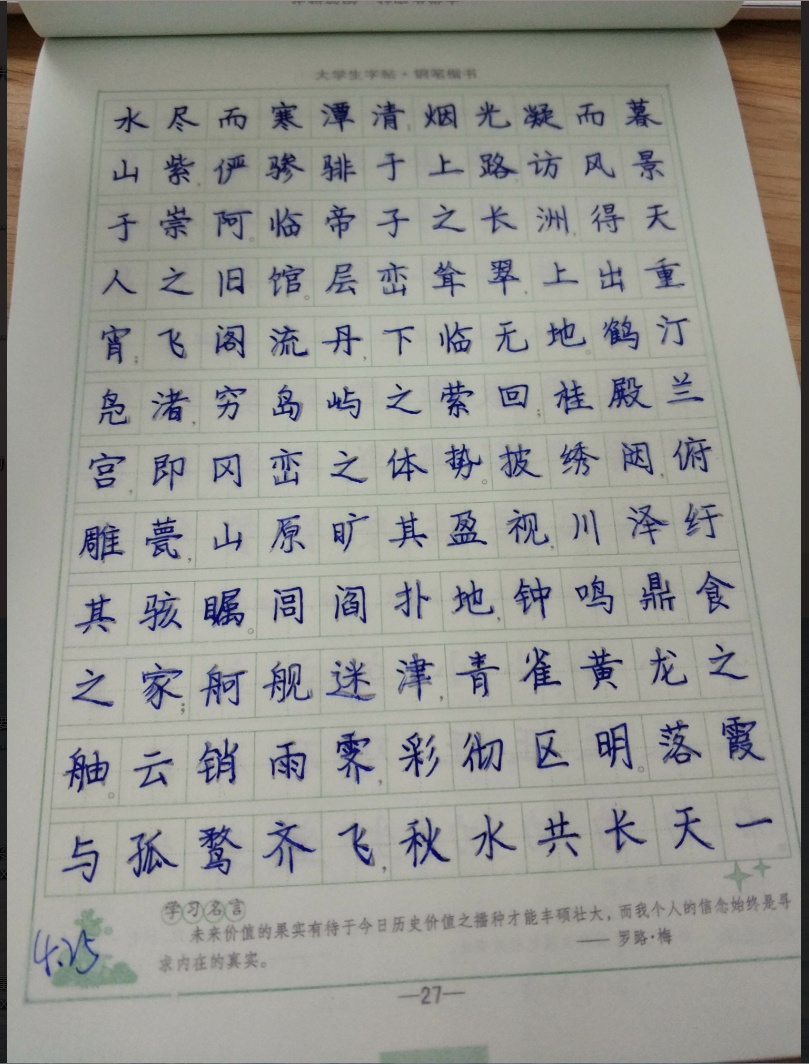 大学生字帖·钢笔楷书
水尽而寒潭清,烟光凝而暮
山紫,俨骖騑于上路,访风景
于崇阿。临帝子之长洲,得天
人之旧馆。层峦耸翠,上出重
宵;飞阁流丹,下临无地。鹤汀
凫渚,穷岛屿之萦回;桂殿兰
宫,即冈峦之体势。披绣闼,俯
雕甍,山原旷其盈视,川泽纡
其骇瞩。闾阎扑地,钟鸣鼎食
之家;舸舰迷津,青雀黄龙之
舳。云销雨霁,彩彻区明。落霞
与孤鹜齐飞,秋水共长天一
学习名言
未来价值的果实有待于今日历史价值之播种才能丰硕壮大,而我个人的信念始终是寻
求内在的真实。
—— 罗路·梅
4.25
—27—